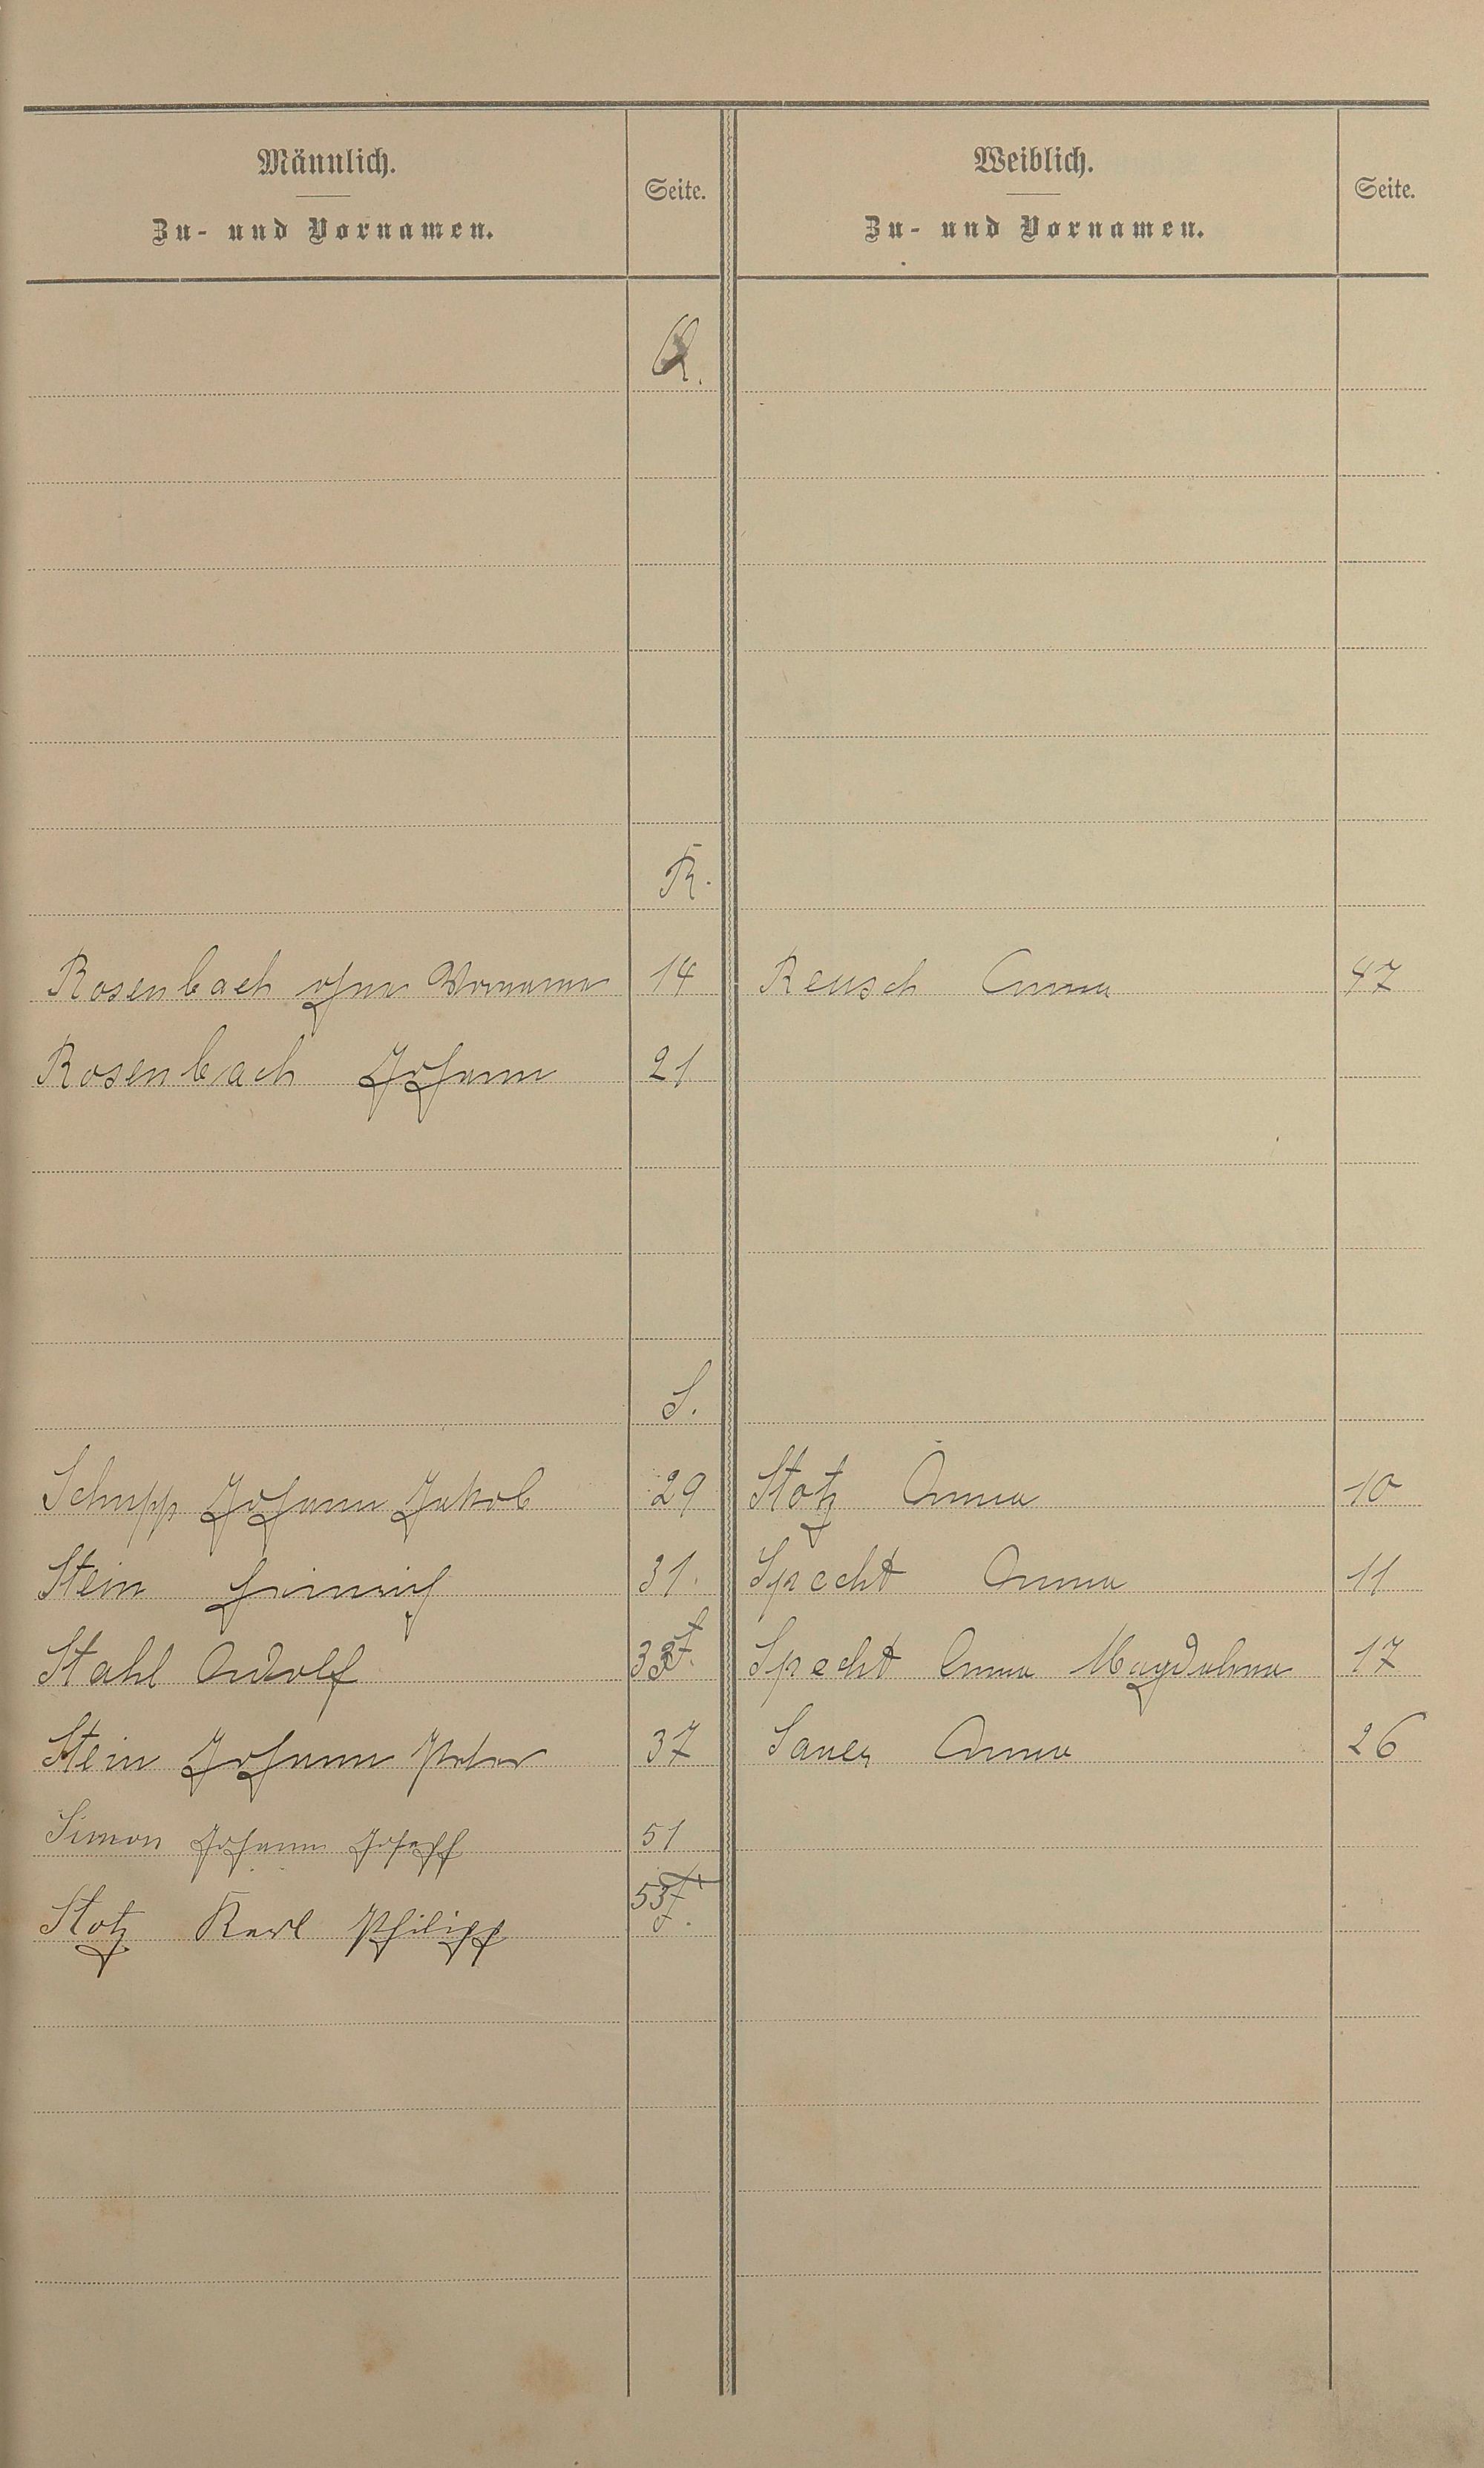 Männlich.
Zu- und Vornamen.
Seite.
Weiblich.
Zu- und Vornamen.
Seite.
Q.
R.
Rosenbach ohne Vornamen 14 Reusch Anna 47
Rosenbach Johann 21
S.
Schupp Johann Jakob 29 Stotz Anna 10
Stein Heinrich 31. Specht Anna 11
Stahl Adolf Specht Anna Magdalena 17
Stein Johann Peter 37 Sauer Anna 26
Simon Johann Joseph 51
Stotz Karl Philipp